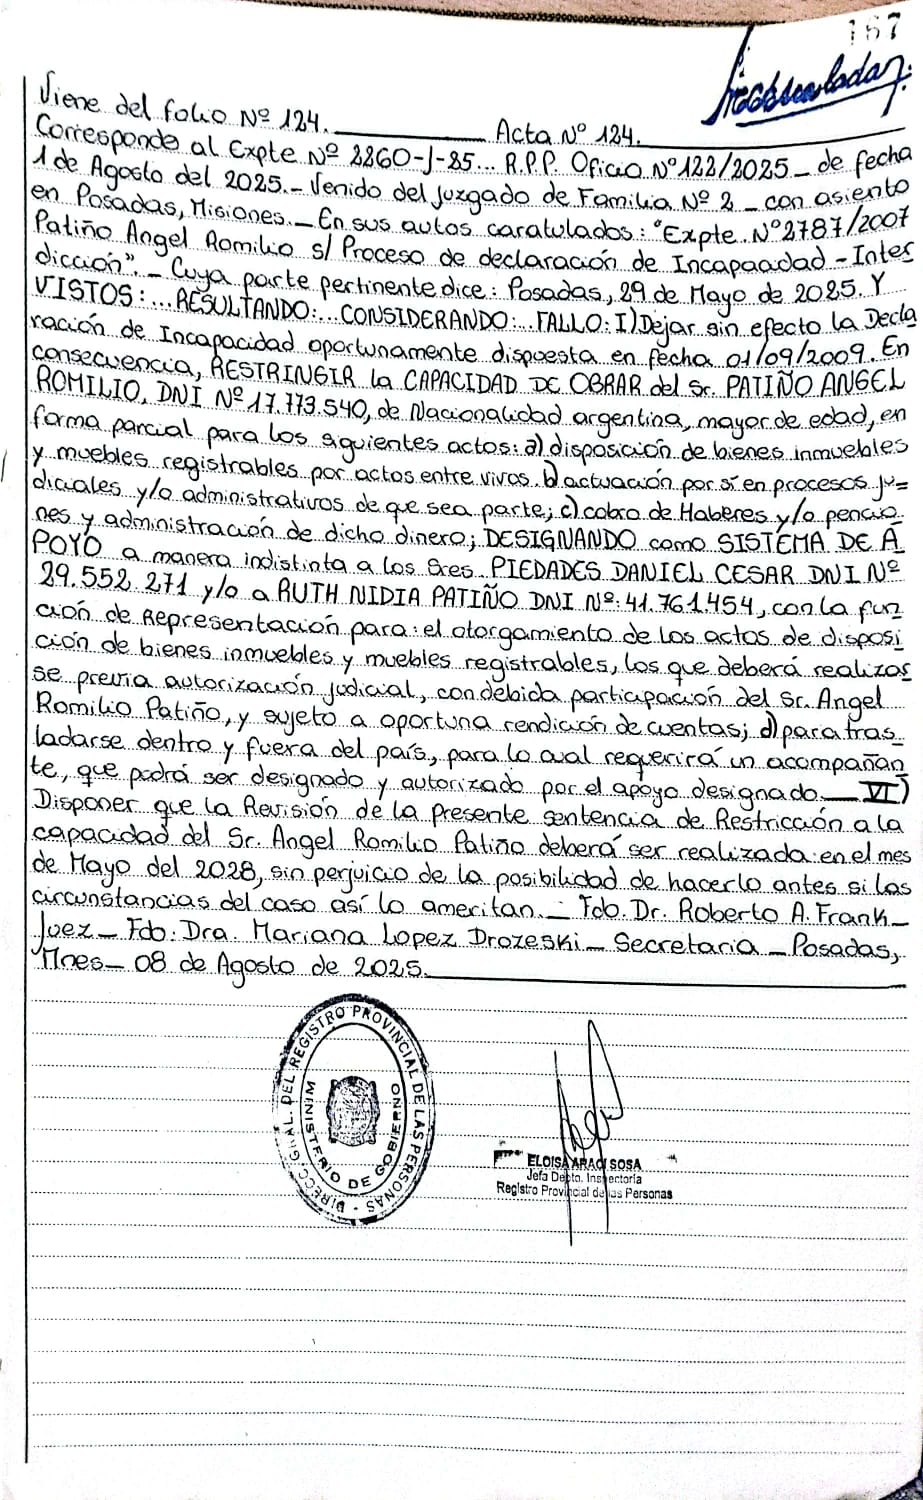 167
Viene del folio Nº 124. Acta Nº 124.
Corresponde al Expte Nº 2260-J-85... R.P.P. Oficio Nº 122/2025 _ de fecha
1 de Agosto del 2025._ Venido del Juzgado de Familia Nº 2 _ con asiento
en Posadas, Misiones._ En sus autos caratulados: "Expte Nº 2787/2007
Patiño Angel Romilio s/ Proceso de declaración de Incapacidad - Inter
dicción"._ Cuya parte pertinente dice: Posadas, 29 de Mayo de 2025. Y
VISTOS:... RESULTANDO:... CONSIDERANDO:... FALLO: I) Dejar sin efecto la Decla
ración de Incapacidad oportunamente dispuesta en fecha 01/09/2009. En
consecuencia, RESTRINGIR la CAPACIDAD DE OBRAR del Sr. PATIÑO ANGEL
ROMILIO, DNI Nº 17.773.540, de Nacionalidad argentina, mayor de edad, en
forma parcial para los siguientes actos: a) disposición de bienes inmuebles
y muebles registrables por actos entre vivos. b) actuación por sí en procesos ju=
diciales y/o administrativos de que sea parte; c) cobro de Haberes y/o pencio
nes y administración de dicho dinero; DESIGNANDO como SISTEMA DE A
POYO a manera indistinta a los Sres PIEDADES DANIEL CESAR DNI Nº
29.552.271 y/o a RUTH NIDIA PATIÑO DNI Nº: 41.761.454, con la fun
ción de Representación para: el otorgamiento de los actos de disposi
ción de bienes inmuebles y muebles registrables, los que deberá realizar
se previa autorización judicial, con debida participación del Sr. Angel
Romilio Patiño, y sujeto a oportuna rendición de cuentas; d) para tras
ladarse dentro y fuera del país, para lo cual requerirá un acompañan
te, que podrá ser designado y autorizado por el apoyo designado. _ VI)
Disponer que la Revisión de la presente sentencia de Restricción a la
capacidad del Sr. Angel Romilio Patiño deberá ser realizada en el mes
de Mayo del 2028, sin perjuicio de la posibilidad de hacerlo antes si las
circunstancias del caso así lo ameritan._ Fdo. Dr. Roberto A. Frank _
Juez _ Fdo: Dra. Mariana Lopez Drozeski _ Secretaria _ Posadas,
Mnes _ 08 de Agosto de 2025.
DIRECC. GRAL. DEL REGISTRO PROVINCIAL DE LAS PERSONAS
MINISTERIO DE GOBIERNO
ELOISA ARACI SOSA
Jefa Depto. Inspectoría
Registro Provincial de las Personas